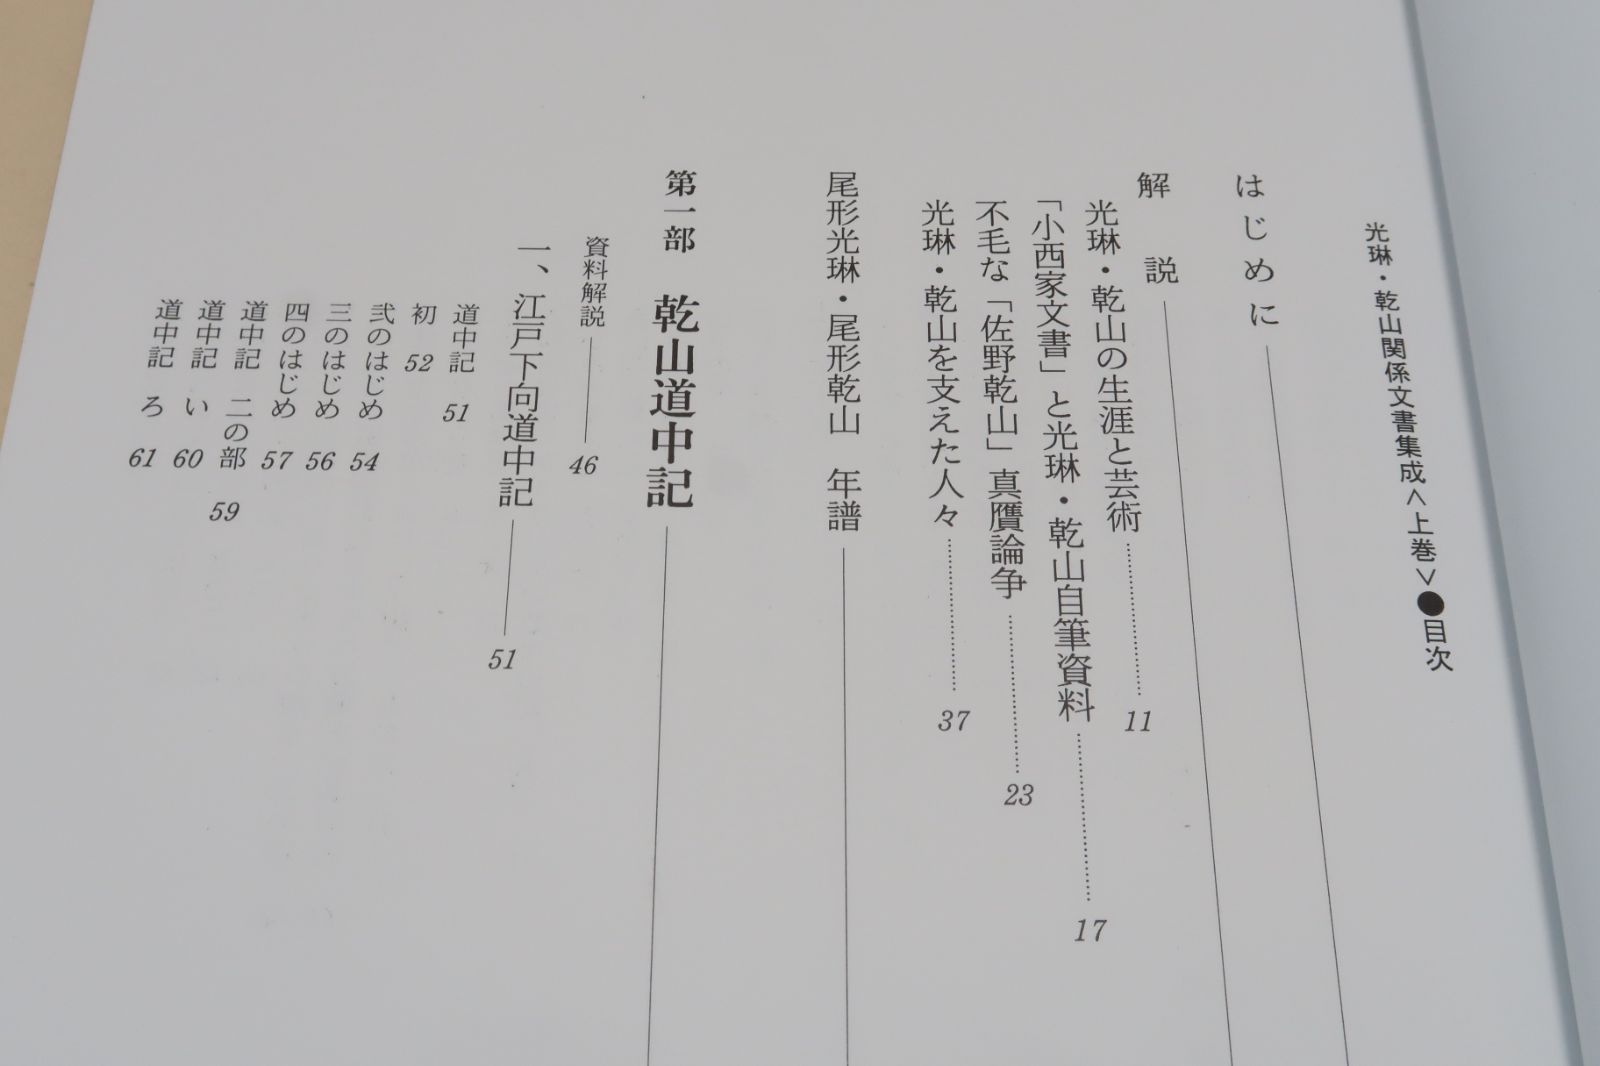 光琳・乾山関係文書集成＜上巻＞●目次
はじめに
解説
光琳・乾山の生涯と芸術 11
「小西家文書」と光琳・乾山自筆資料 17
不毛な「佐野乾山」真贋論争 23
光琳・乾山を支えた人々 37
尾形光琳・尾形乾山 年譜
第一部 乾山道中記
資料解説 46
一、江戸下向道中記 51
道中記 51
初 52
弐のはじめ 54
三のはじめ 56
四のはじめ 57
道中記 二の部 59
道中記 い 60
道中記 ろ 61